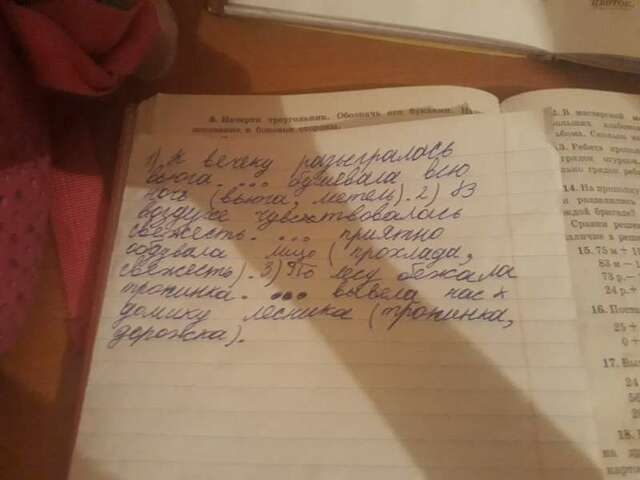 ЦВЕТОК.
8. Начерти треугольник. Обозначь его буквами.
основание и боковые стороны.
1) К вечеру разыгралась
вьюга. ... бушевала всю
ночь (вьюга, метель). 2) В
воздухе чувствовалась
свежесть. ... приятно
обдувала лицо (прохлада,
свежесть). 3) По лесу бежала
тропинка. ... вывела нас к
домику лесника (тропинка,
дорожка).
2. В мастерской
больших
альбома. Сколько
13. Ребята
грядок
14. На
и разделились
каждой бригаде?
Сравни
различие в
15. 75 м + 1
83 м − 1
73 р. −
24 р. +
16.
25 +
0 +
17.
24
56
2
18.
на